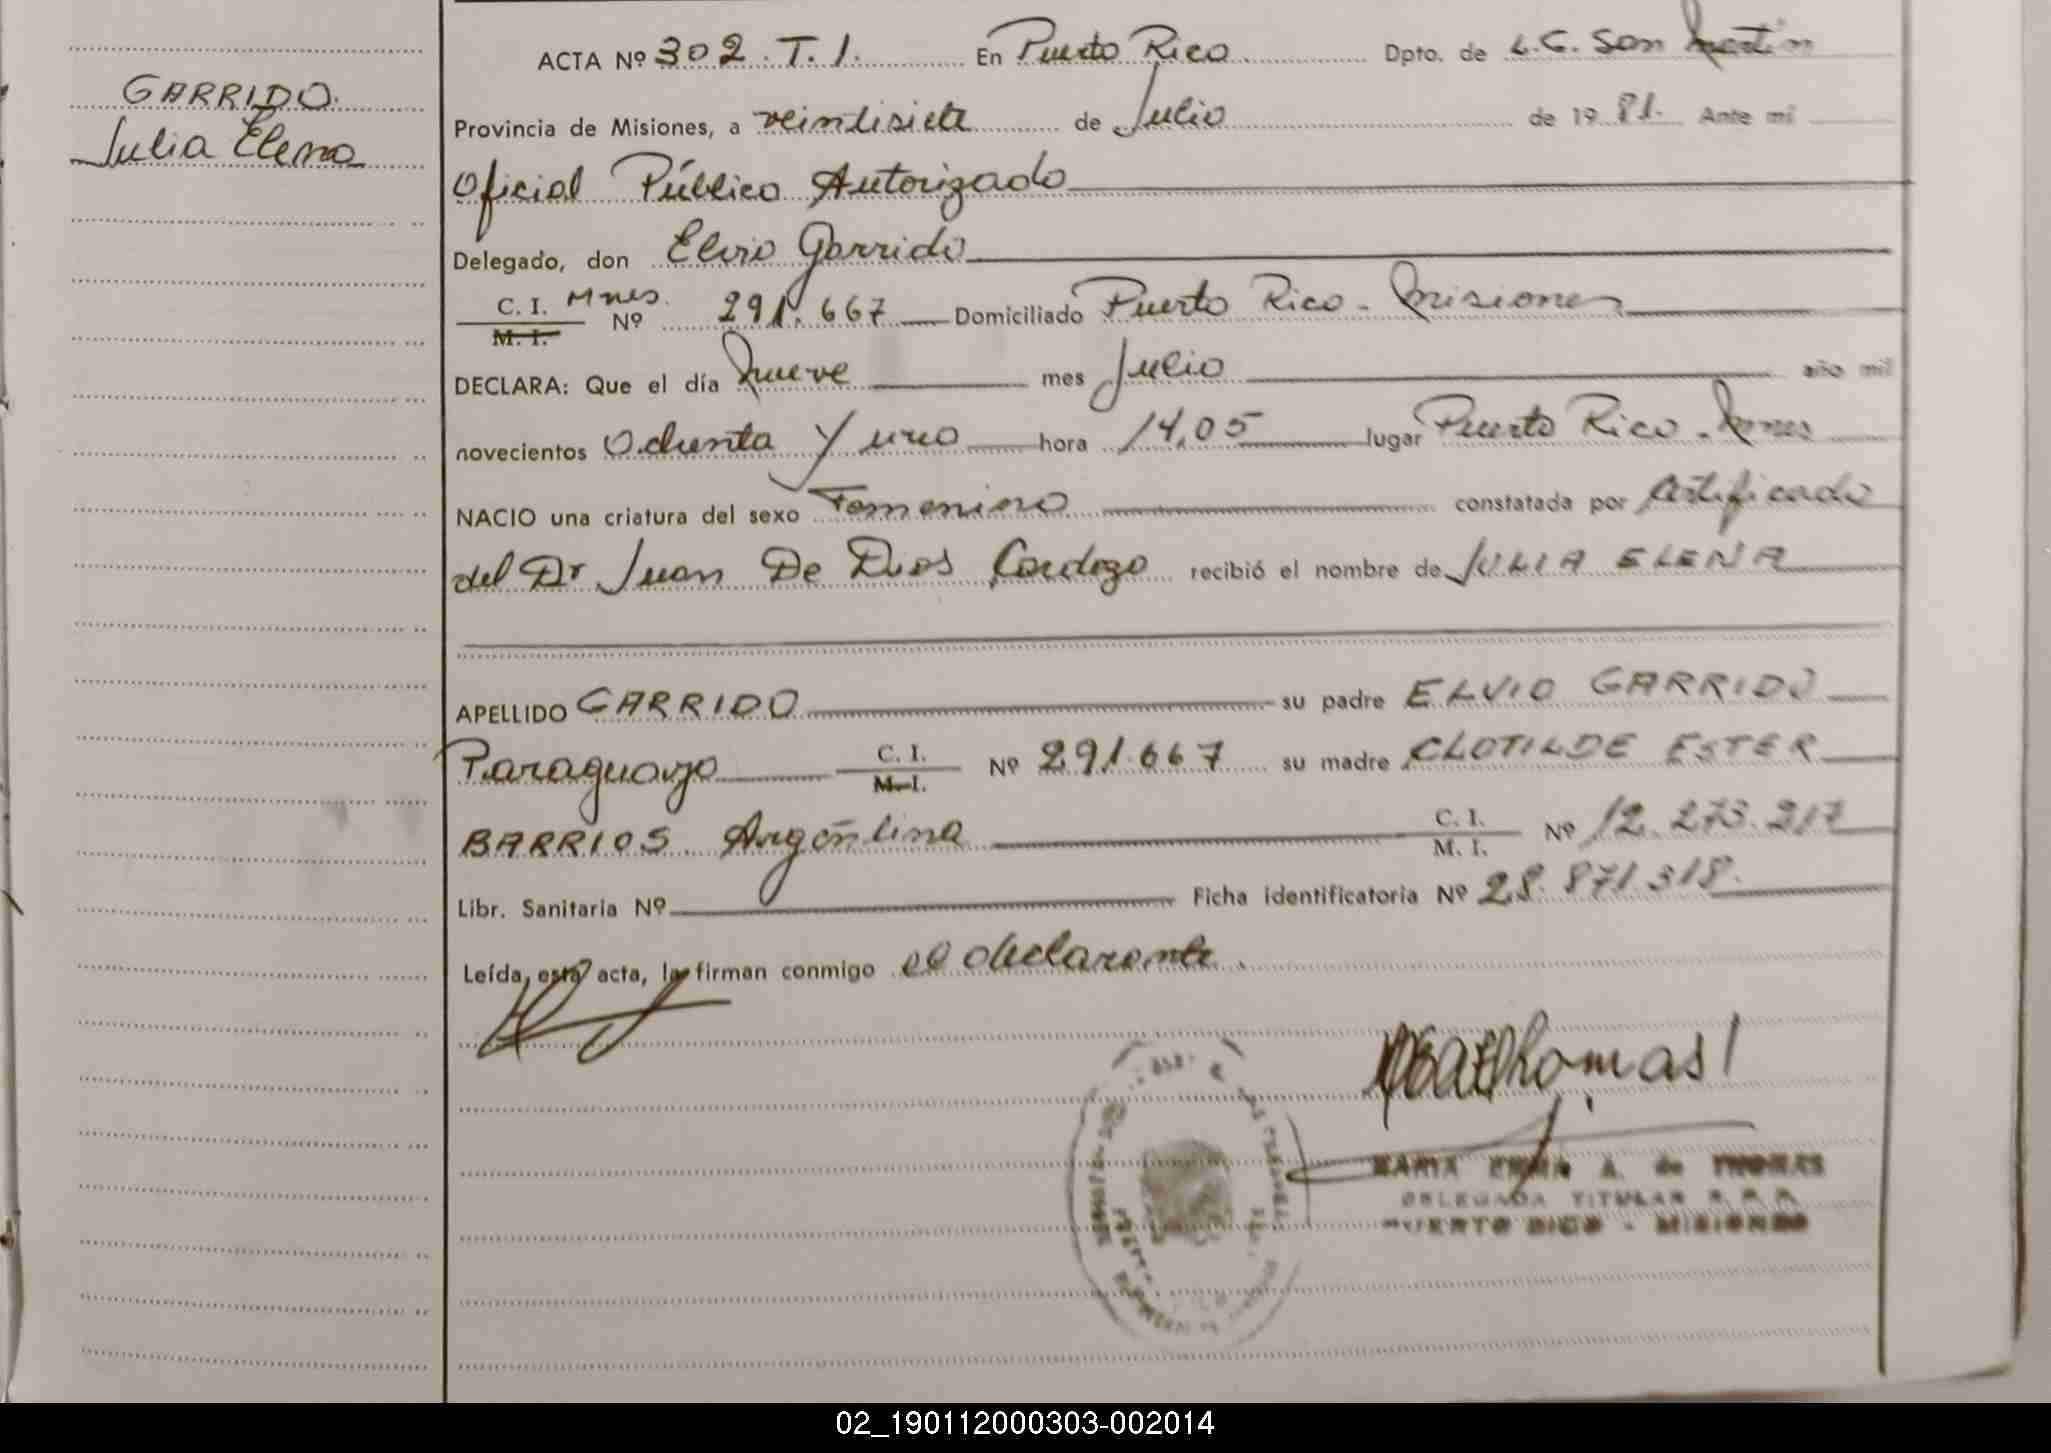 GARRIDO.
Julia Elena
ACTA Nº 302. T. 1. En Puerto Rico Dpto. de L.G. San Martín
Provincia de Misiones, a veintisiete de Julio de 1981. Ante mi
Oficial Público Autorizado
Delegado, don Elvio Garrido
C. I. Mnes.
M. I. Nº 291.667 Domiciliado Puerto Rico - Misiones
DECLARA: Que el día nueve mes Julio año mil
novecientos Ochenta y uno hora 14,05 lugar Puerto Rico - Mnes
NACIO una criatura del sexo Femenino constatada por Certificado
del Dr Juan De Dios Cardozo recibió el nombre de JULIA ELENA
APELLIDO GARRIDO su padre ELVIO GARRIDO
Paraguayo C. I. M. I. Nº 291.667 su madre CLOTILDE ESTER
BARRIOS Argentina C. I. M. I. Nº 12.273.217
Libr. Sanitaria Nº Ficha identificatoria Nº 28.871.318.
Leída, esta acta, la firman conmigo el declarante.
MARIA EMMA A. de THOMAS
DELEGADA TITULAR R. P. P.
PUERTO RICO - MISIONES
02_190112000303-002014